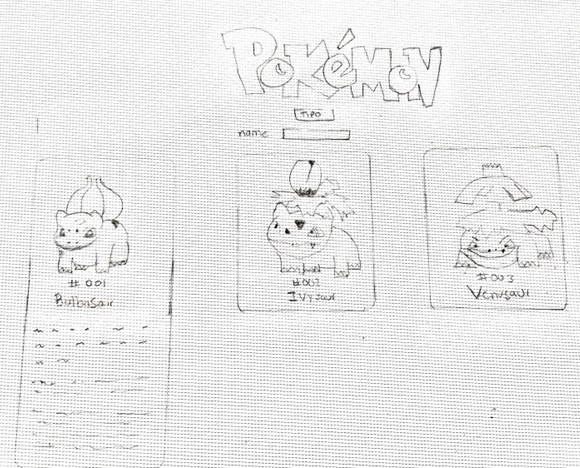 POKéMON
TIPO
name
#001
BulbaSaur
#002
IVYsaur
#003
Venusaur